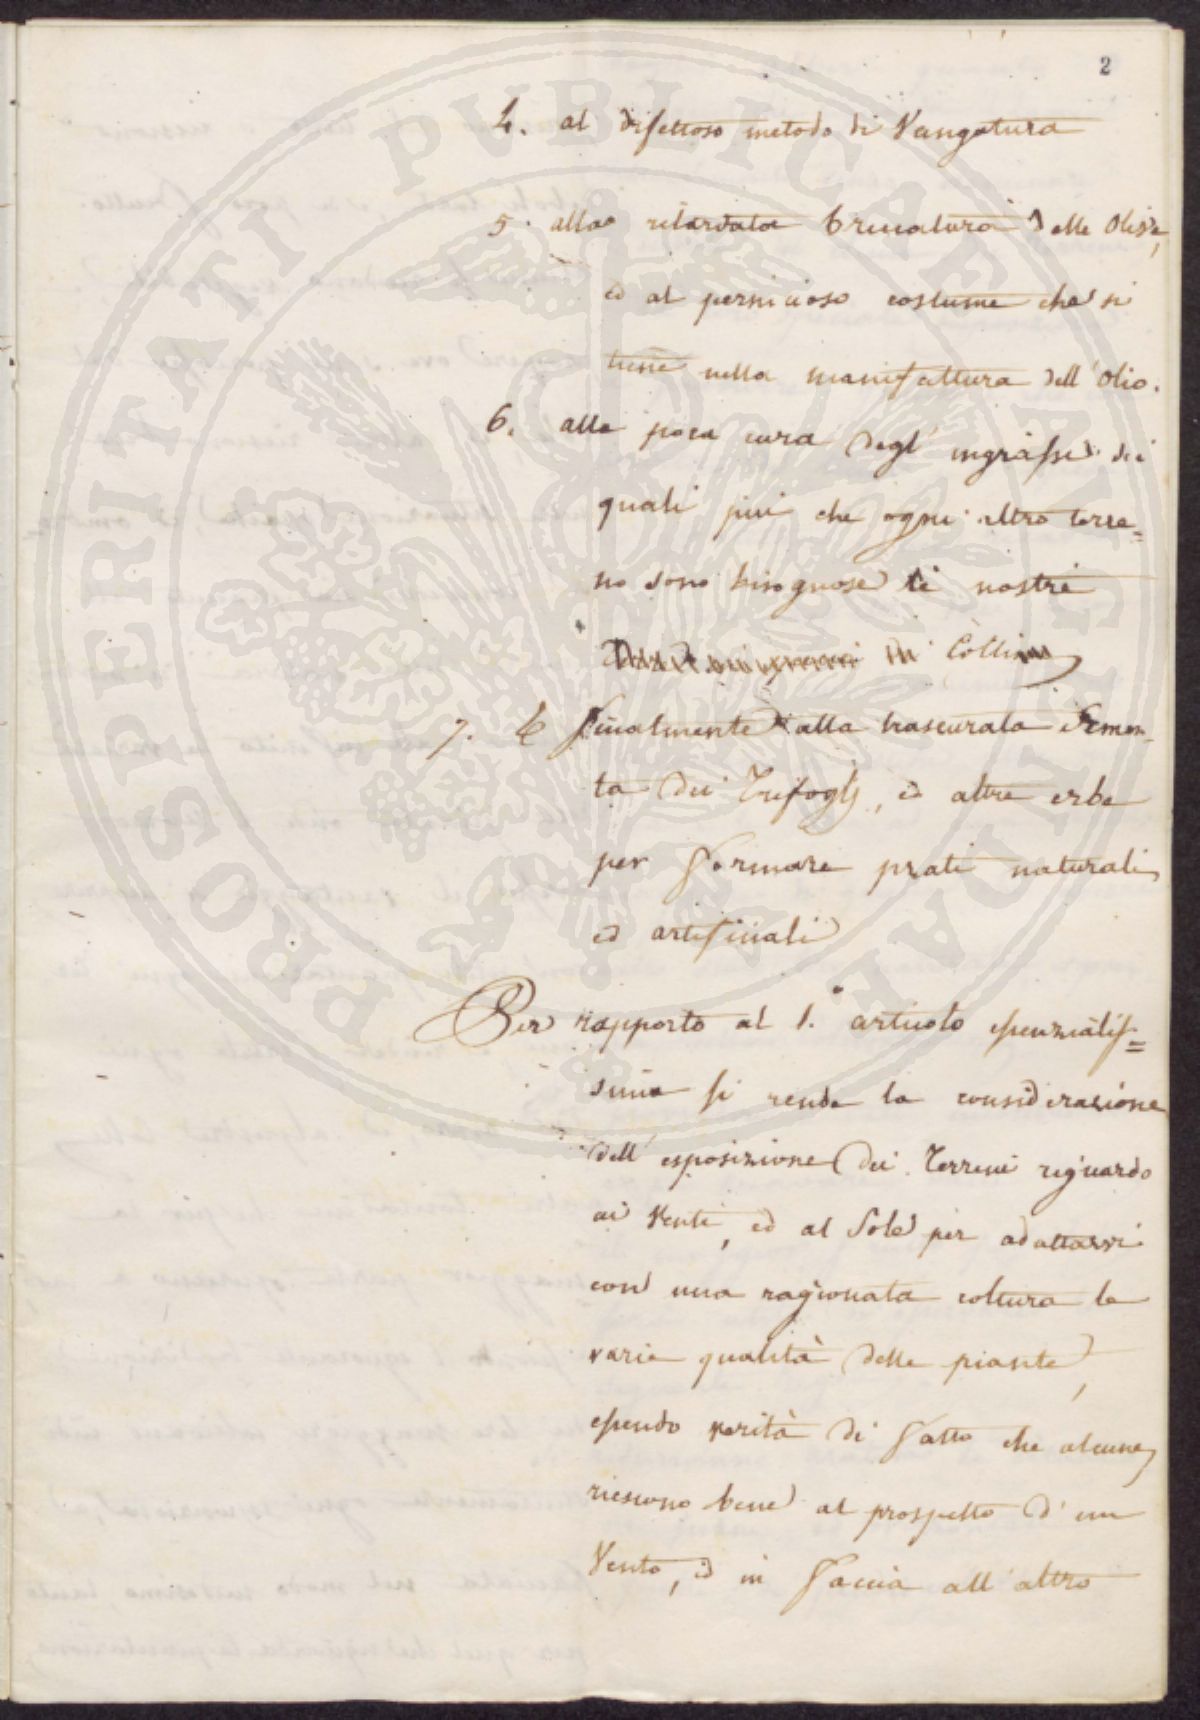 2
4. al difettoso metodo di Vangatura
5. alla ritardata bruccatura delle Olive,
ed al pernicioso costume che si
tiene nella manifattura dell'Olio.
6. alla poca cura degl'ingrassi dei
quali più che ogni altro terre=
no sono bisognose le nostre
Colline
7. E finalmente alla trascurata semen-
ta dei Trifoglj, ed altre erbe
per formare prati naturali
ed artificiali
Per rapporto al 1.° articolo essenzialis=
sima si rende la considerazione
dell'esposizione dei Terreni riguardo
ai Venti, ed al Sole per adattarvi
con una ragionata coltura le
varie qualità delle piante,
essendo verità di fatto che alcune
riescono bene al prospetto d'un
Vento, ed in faccia all'altro
PROSPERITATI PUBLICAE AUGENDAE